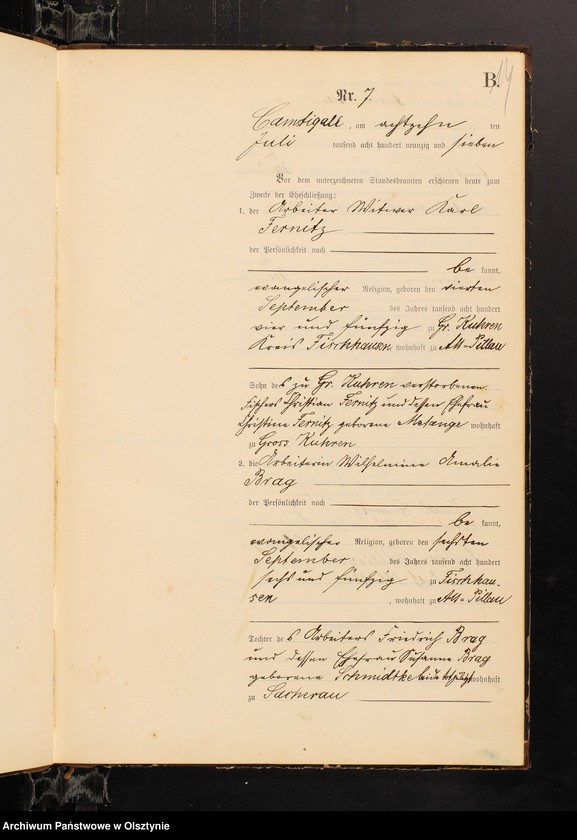 B.
Nr. 7
Camstigall, am achtzehn ten
Juli tausend acht hundert neunzig und sieben
Vor dem unterzeichneten Standesbeamten erschienen heute zum
Zwecke der Eheschließung:
1. der Arbeiter Witwer Karl
Fernitz
der Persönlichkeit nach
be kannt,
evangelischer Religion, geboren den vierten
September des Jahres tausend acht hundert
vier und fünfzig zu Gr. Kuhren
Kreis Fischhausen wohnhaft zu Alt-Pillau
Sohn des zu Gr. Kuhren verstorbenen
Fischers Christian Fernitz und dessen Ehefrau
Christine Fernitz geborene wohnhaft
zu Gross Kuhren
2. die Arbeiterin Wilhelmine Amalie
Brag
der Persönlichkeit nach
be kannt,
evangelischer Religion, geboren den sechsten
September des Jahres tausend acht hundert
sechs und fünfzig zu Fischhau-
sen, wohnhaft zu Alt-Pillau
Tochter des Arbeiters Friedrich Brag
und dessen Ehefrau Susanne Brag
geborene Schmidtke beide wohnhaft
zu Sacherau
Archiwum Państwowe w Olsztynie